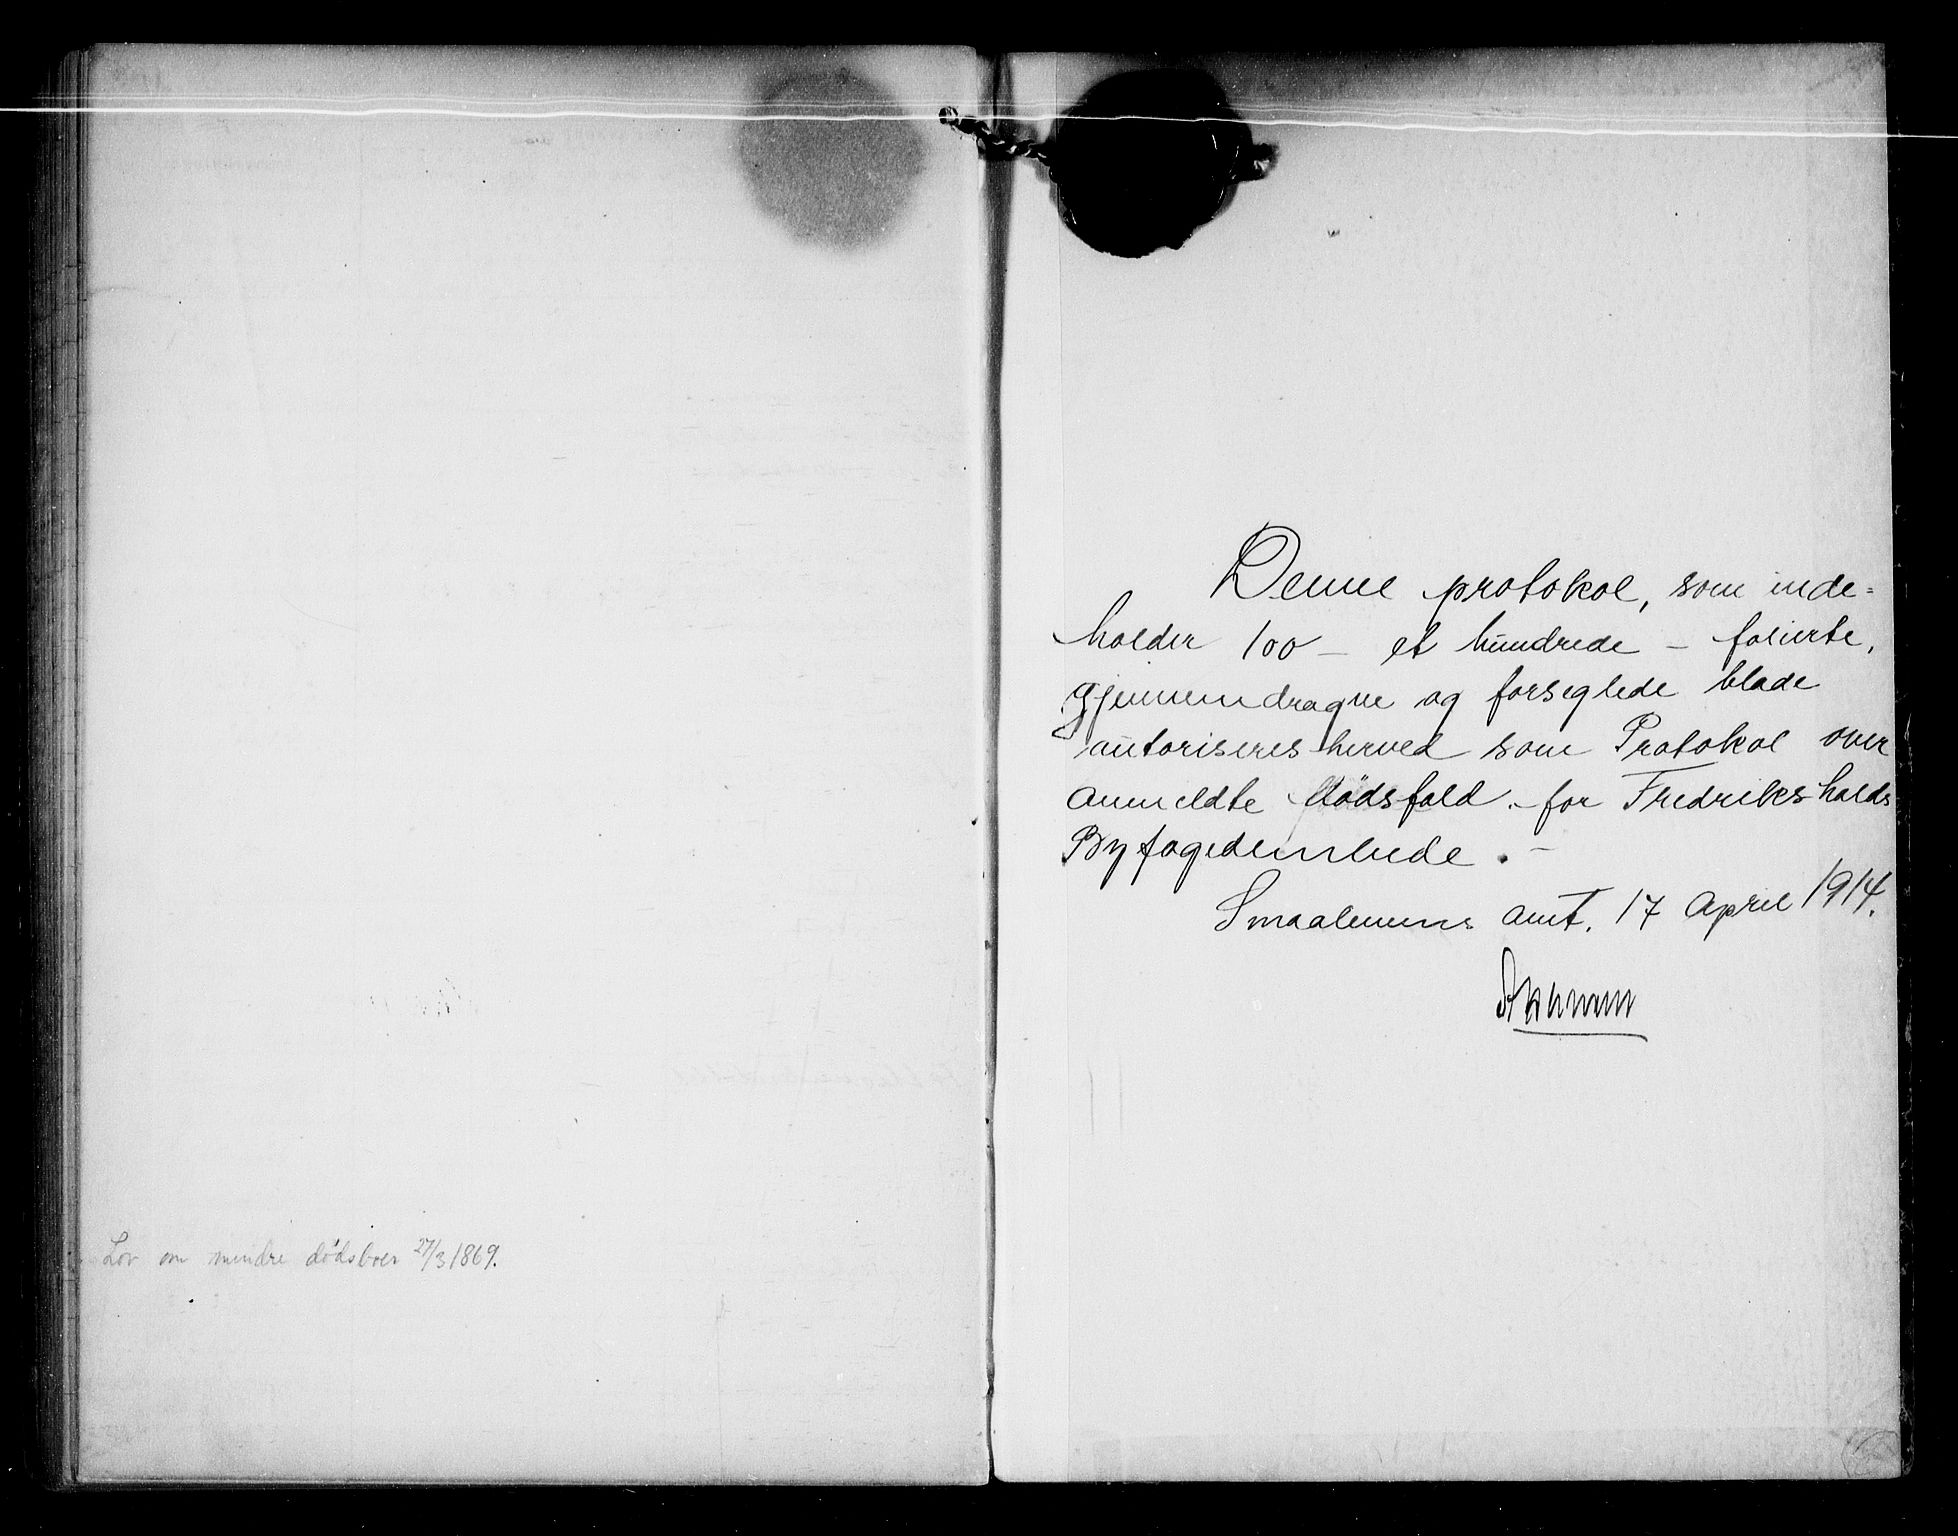 Lov om mindre dödsboer 27/3 1869.
Denne protokol, som inde=
holder 100 - et hundrede - folierte,
gjennemdragne og forseglede blade
autoriseres herved som Protokol over
anmeldte dödsfald for Fredrikshalds
Byfogedembede. -
Smaalenenes amt. 17 April 1914.